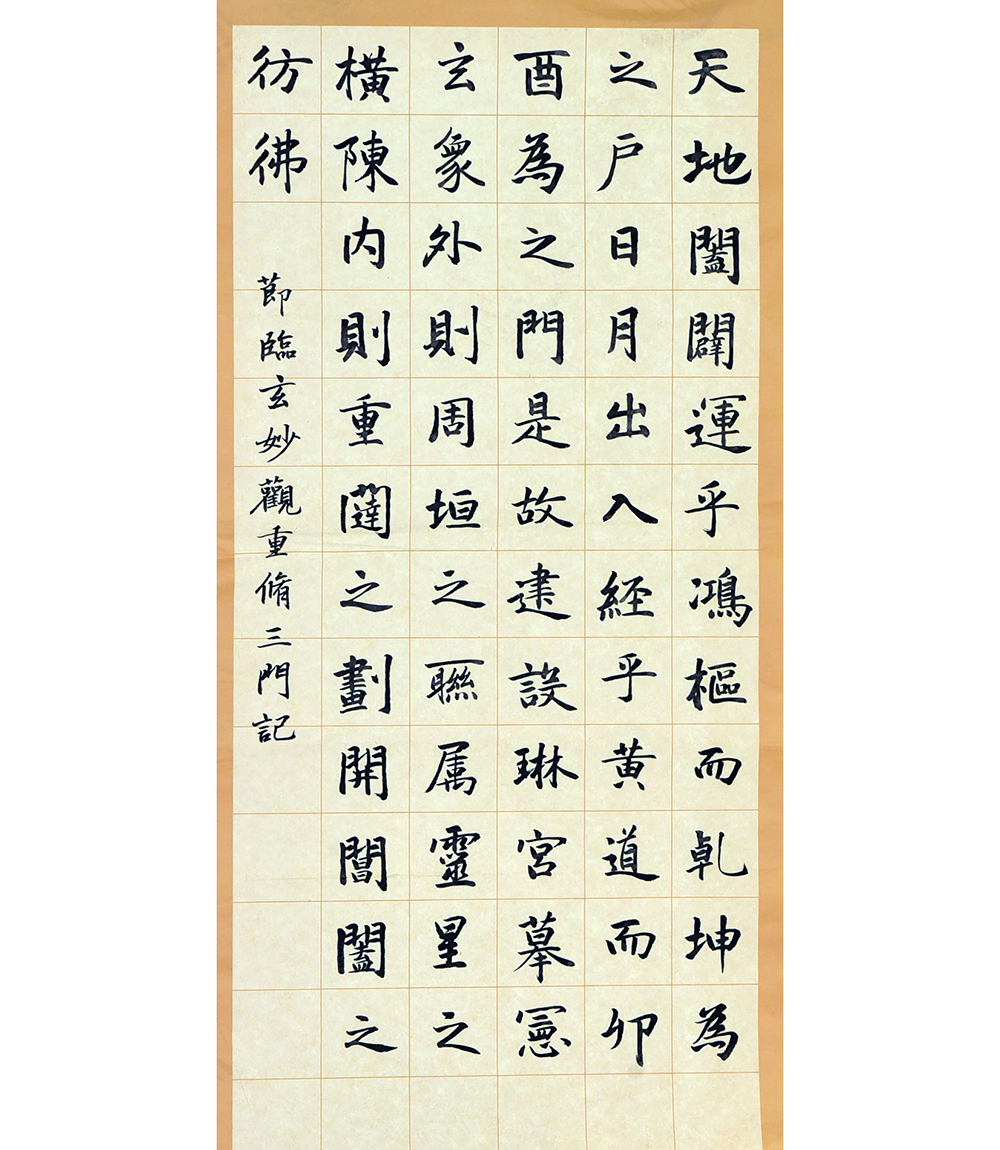 天地闔闢運乎鴻樞而乹坤為
之戶日月出入經乎黃道而卯
酉為之門是故建設琳宮摹憲
玄象外則周垣之聯属靈星之
橫陳内則重闥之劃開閶闔之
彷彿
莭臨玄妙觀重脩三門記